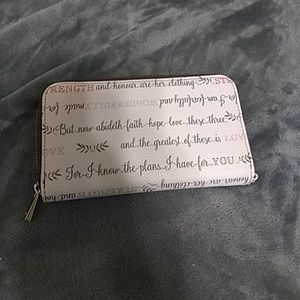 STRENGTH and honour are her clothing STR
for I am fearfully and WONDERFULLY made for
But now abideth faith, hope, love, these three;
LOVE and the greatest of these is LOVE
For I know the plans I have for YOU
honour are her clothing STRENGTH and hon